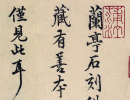 蘭亭石刻
藏有善本
僅見此耳